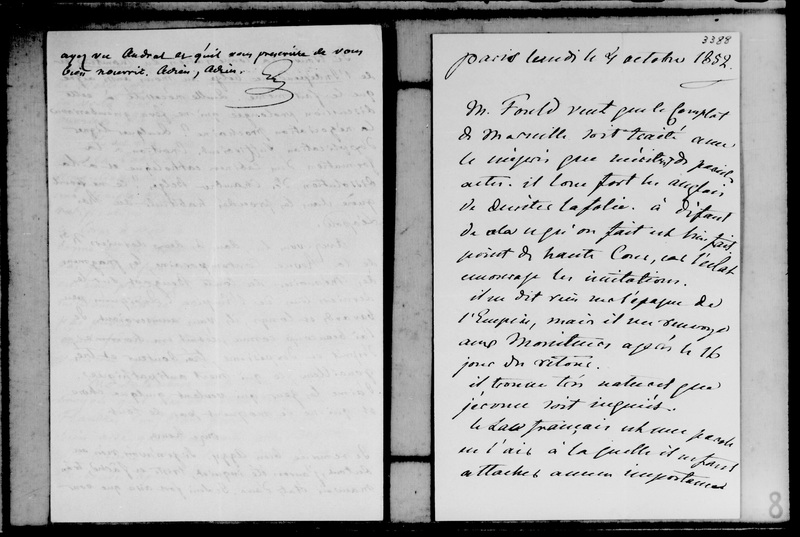 ayez vu Andral et qu'il vous prescrive de vous
bien nourrir. Adieu, Adieu.
3388
Paris lundi le 4 octobre 1852.
M. Fould veut que le Complot
de Marseille soit traité avec
le mépris que méritent de pareils
actes. il loue fort les anglais
de décréter la folie. à défaut
de cela ce qu'on fait est bien fait
point de haute Cour, car l'éclat
encourage les imitations.
il ne dit rien sur l'épaque de
l'Empire, mais il me renvoye
aux Moniteurs après le 16
jour du retour.
il trouve très naturel que
l'écosse soit inquiète.
le Lac français est une parole
en l'air à laquelle il ne faut
attacher aucune importance
8